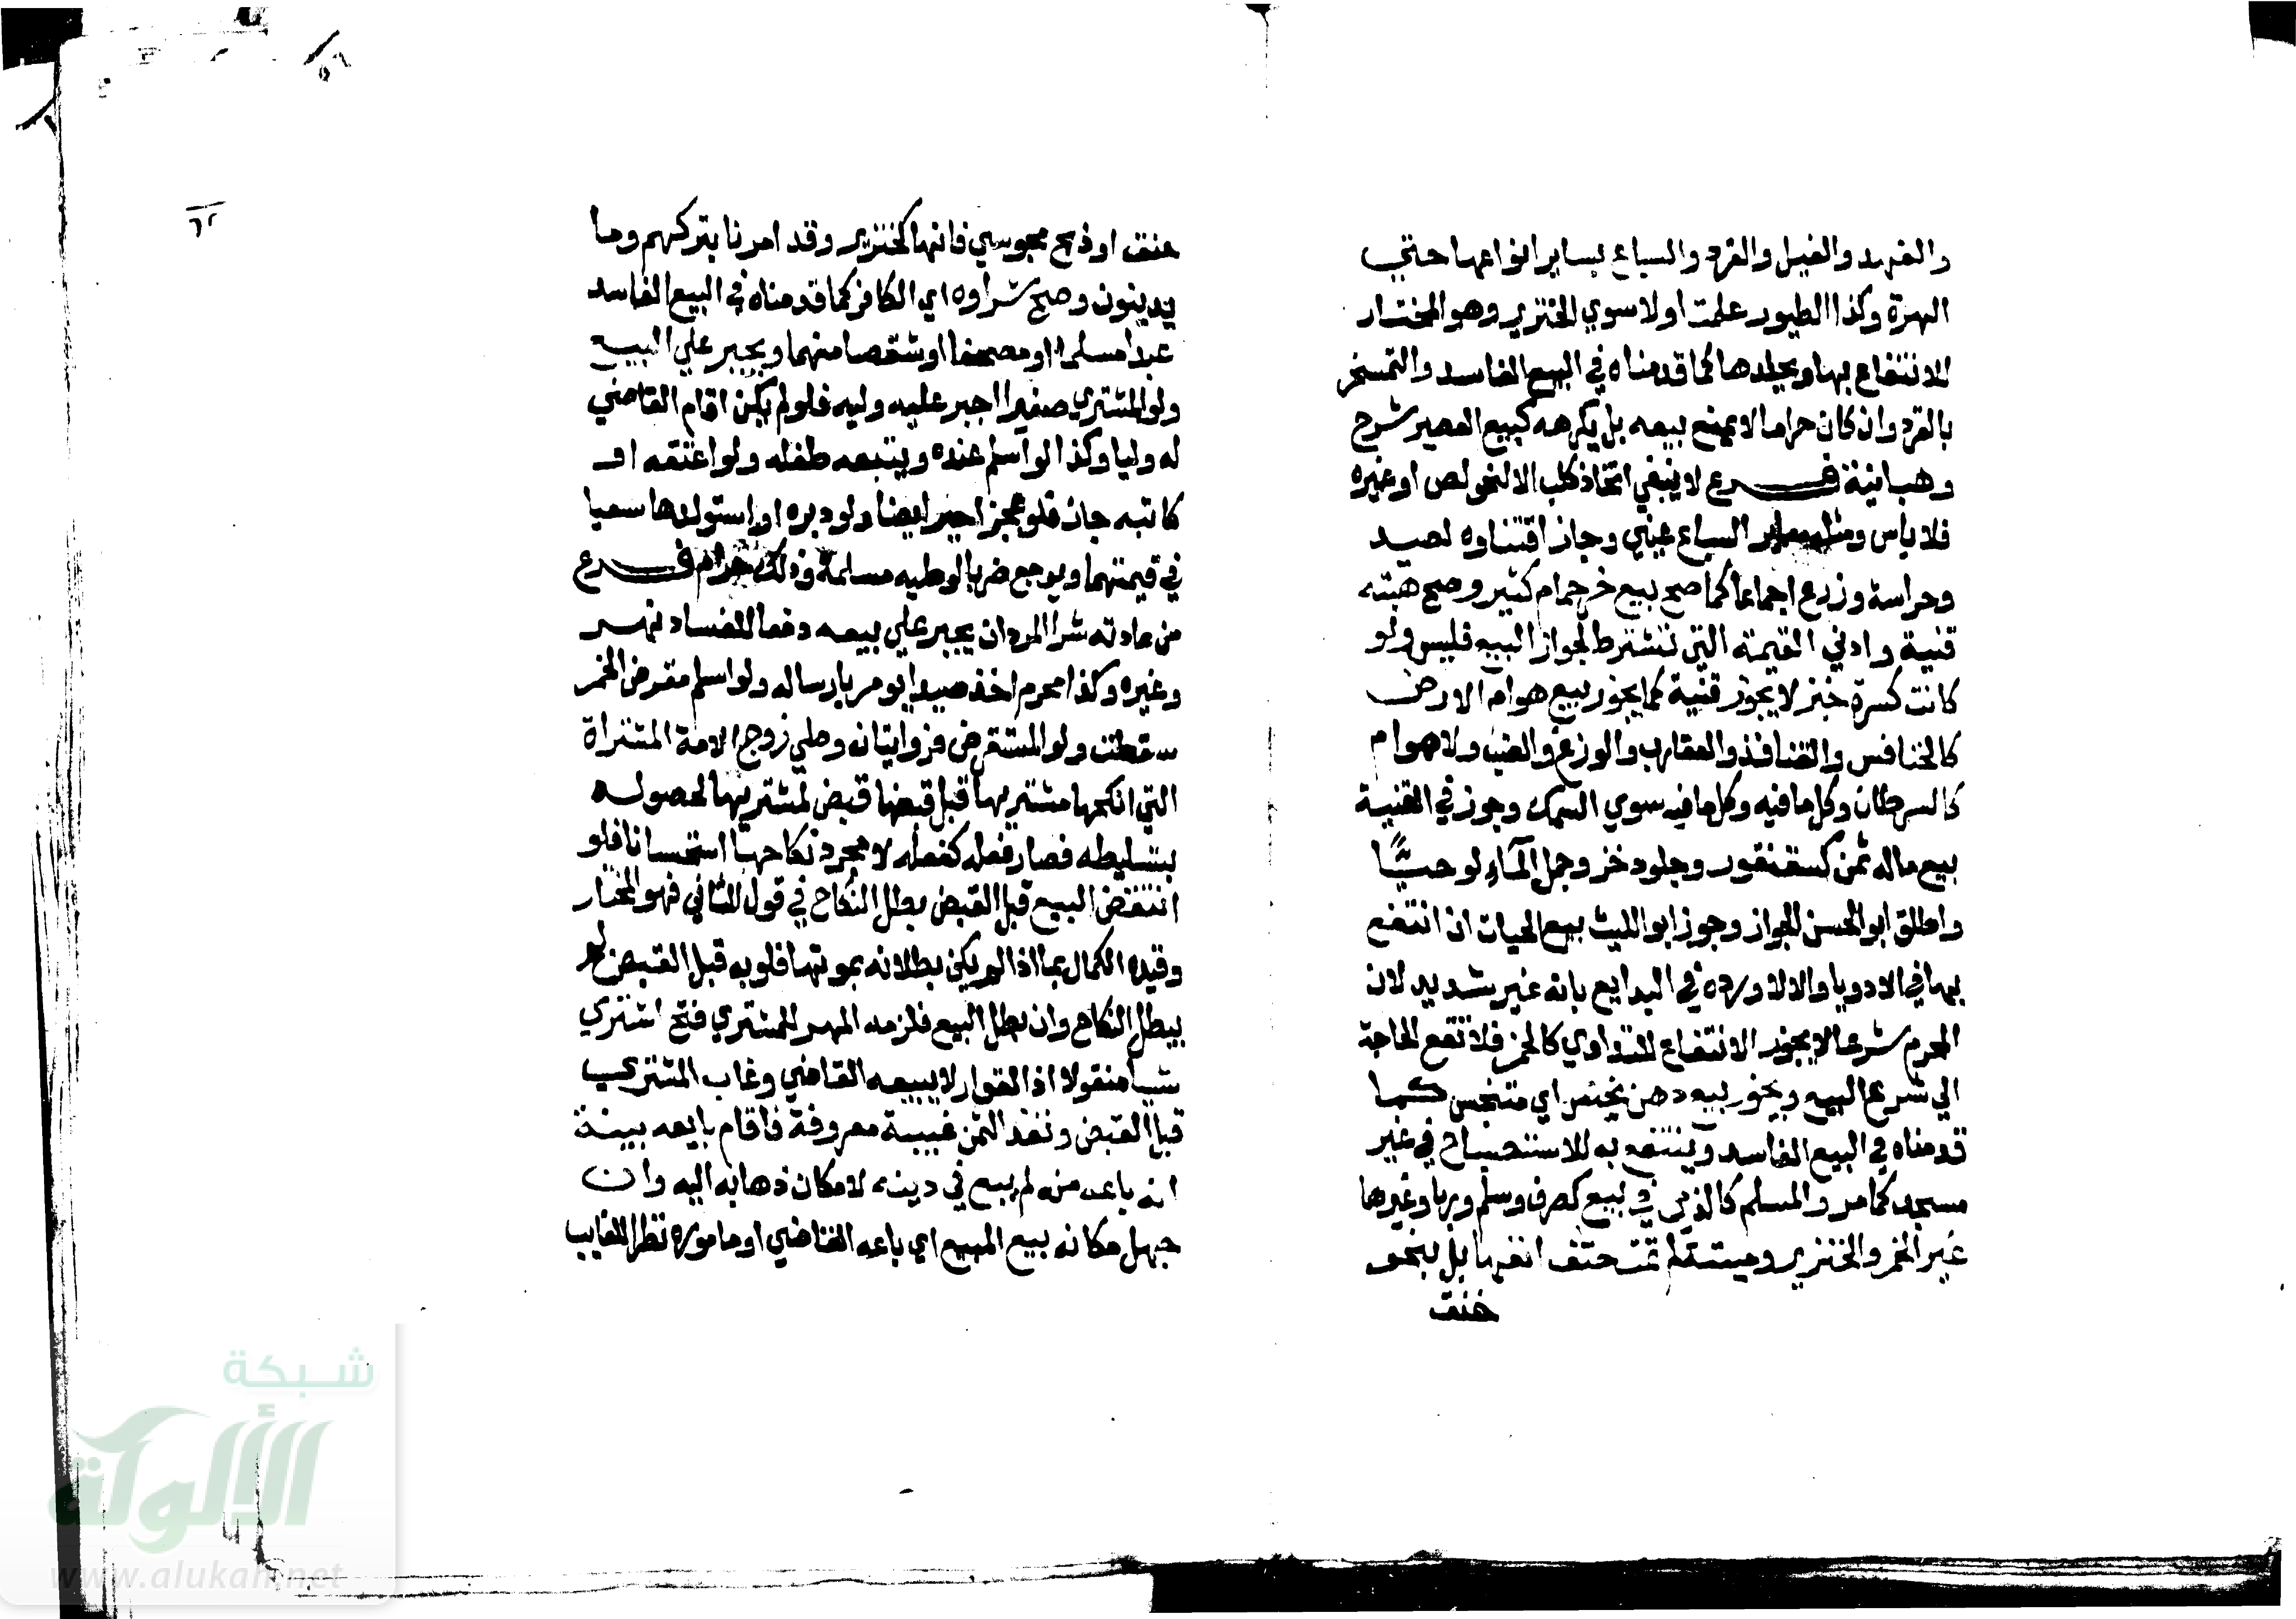 والفهد والفيل والقرد والسباع بساير انواعها حتي
الهرة وكذا الطيور علمت اولا سوي الخنزير وهو المختار
للانتفاع بها وبجلدها كما قدمناه في البيع الفاسد والتمسخر
بالقرد وان كان حراما لا يمنع بيعه بل يكرهه كبيع العصير شرح
وهبانية فرع لا ينبغي اتخاذ كلب الا لنخو لص او غيره
فلا باس ومثله ساير السباع عيني وجاز اقتناوه لصيد
وحراسة وزرع اجماعا كما صح بيع خر حمام كثير وصح هبته
قنية وادني القيمة التي تشترط لجواز البيع فليس ولو
كانت كسرة خبز لا يجوز قنية كما يجوز بيع هوام الارض
كالخنافس والقنافذ والعقارب والوزغ والضب ولا هوام
كالسرطان وكل ما فيه وكل ما فيه سوي السمك وجوز في القنية
بيع ماله ثمن كسقنقور وجلود خز وجمل الماء لو حيًّا
واطلق ابو الحسن الجواز وجوز ابو الليث بيع الحيات ان انتفع
بها في الادويا والا لا ورده في البدايع بانه غير شديد لان
المحرم شرعا لا يجوز الانتفاع للتداوي كالخمر فلا تقع الحاجة
الي شرع البيع ويجوز بيع دهن نجس اي متنجس كما
قدمناه في البيع الفاسد وينتفع به للاستصباح في غير
مسجد كما مر والمسلم كالذمي في بيع كصرف وسلم وربا وغيرها
غير الخمر والخنزير وميتة لم تمت حتف انفها بل بنحو
خنق
خنق او ذبح مجوسي فانها كخنزير وقد امرنا بتركهم وما
يدينون وصح شراوه اي الكافر كما قدمناه في البيع الفاسد
عبدا مسلما او مصحفا او شقصا منهما ويجبر علي البيع
ولو المشتري صغيرا اجبر عليه وليه فلو لم يكن اقام القاضي
له وليا وكذا لو اسلم عنده ويتبعه طفله ولو اعتقه او
كاتبه جاز فلو عجز اجبر ايضا ولو دبره او استولدها سعيا
في قيمتهما ويوجع ضربا لوطيه مسلمة وذلك حرام فرع
من عادته شرا المردان يجبر علي بيعه دفعا للفساد نهر
وغيره وكذا محرم اخذ صيدا يومر بارساله ولو اسلم مقرض الخمر
سقطت ولو المستقرض فروايتان وطي زوج الامة المشتراة
التي انكحها مشتريها قبل قبضها قبض لمشتريها لحصوله
بتسليطه فصار فعله كفعله لا مجرد نكاحها استحسانا فلو
انتقض البيع قبل القبض بطل النكاح في قول الثاني فهو المختار
وقيده الكمال بما اذا لم يكن بطلانه بموتها فلو به قبل القبض لم
يبطل النكاح وان بطل البيع فلزمه المهر للمشتري فتح اشتري
شيا منقولا اذ العقار لا يبيعه القاضي وغاب المشتري
قبل القبض ونقد الثمن غيبة معروفة فاقام بايعه بينة
انه باعه منه لم يبع في دينه لامكان ذهابه اليه وان
جهل مكانه بيع المبيع اي باعه القاضي او ماموره نظرا للغايب
شبكة
الألوكة
www.alukah.net